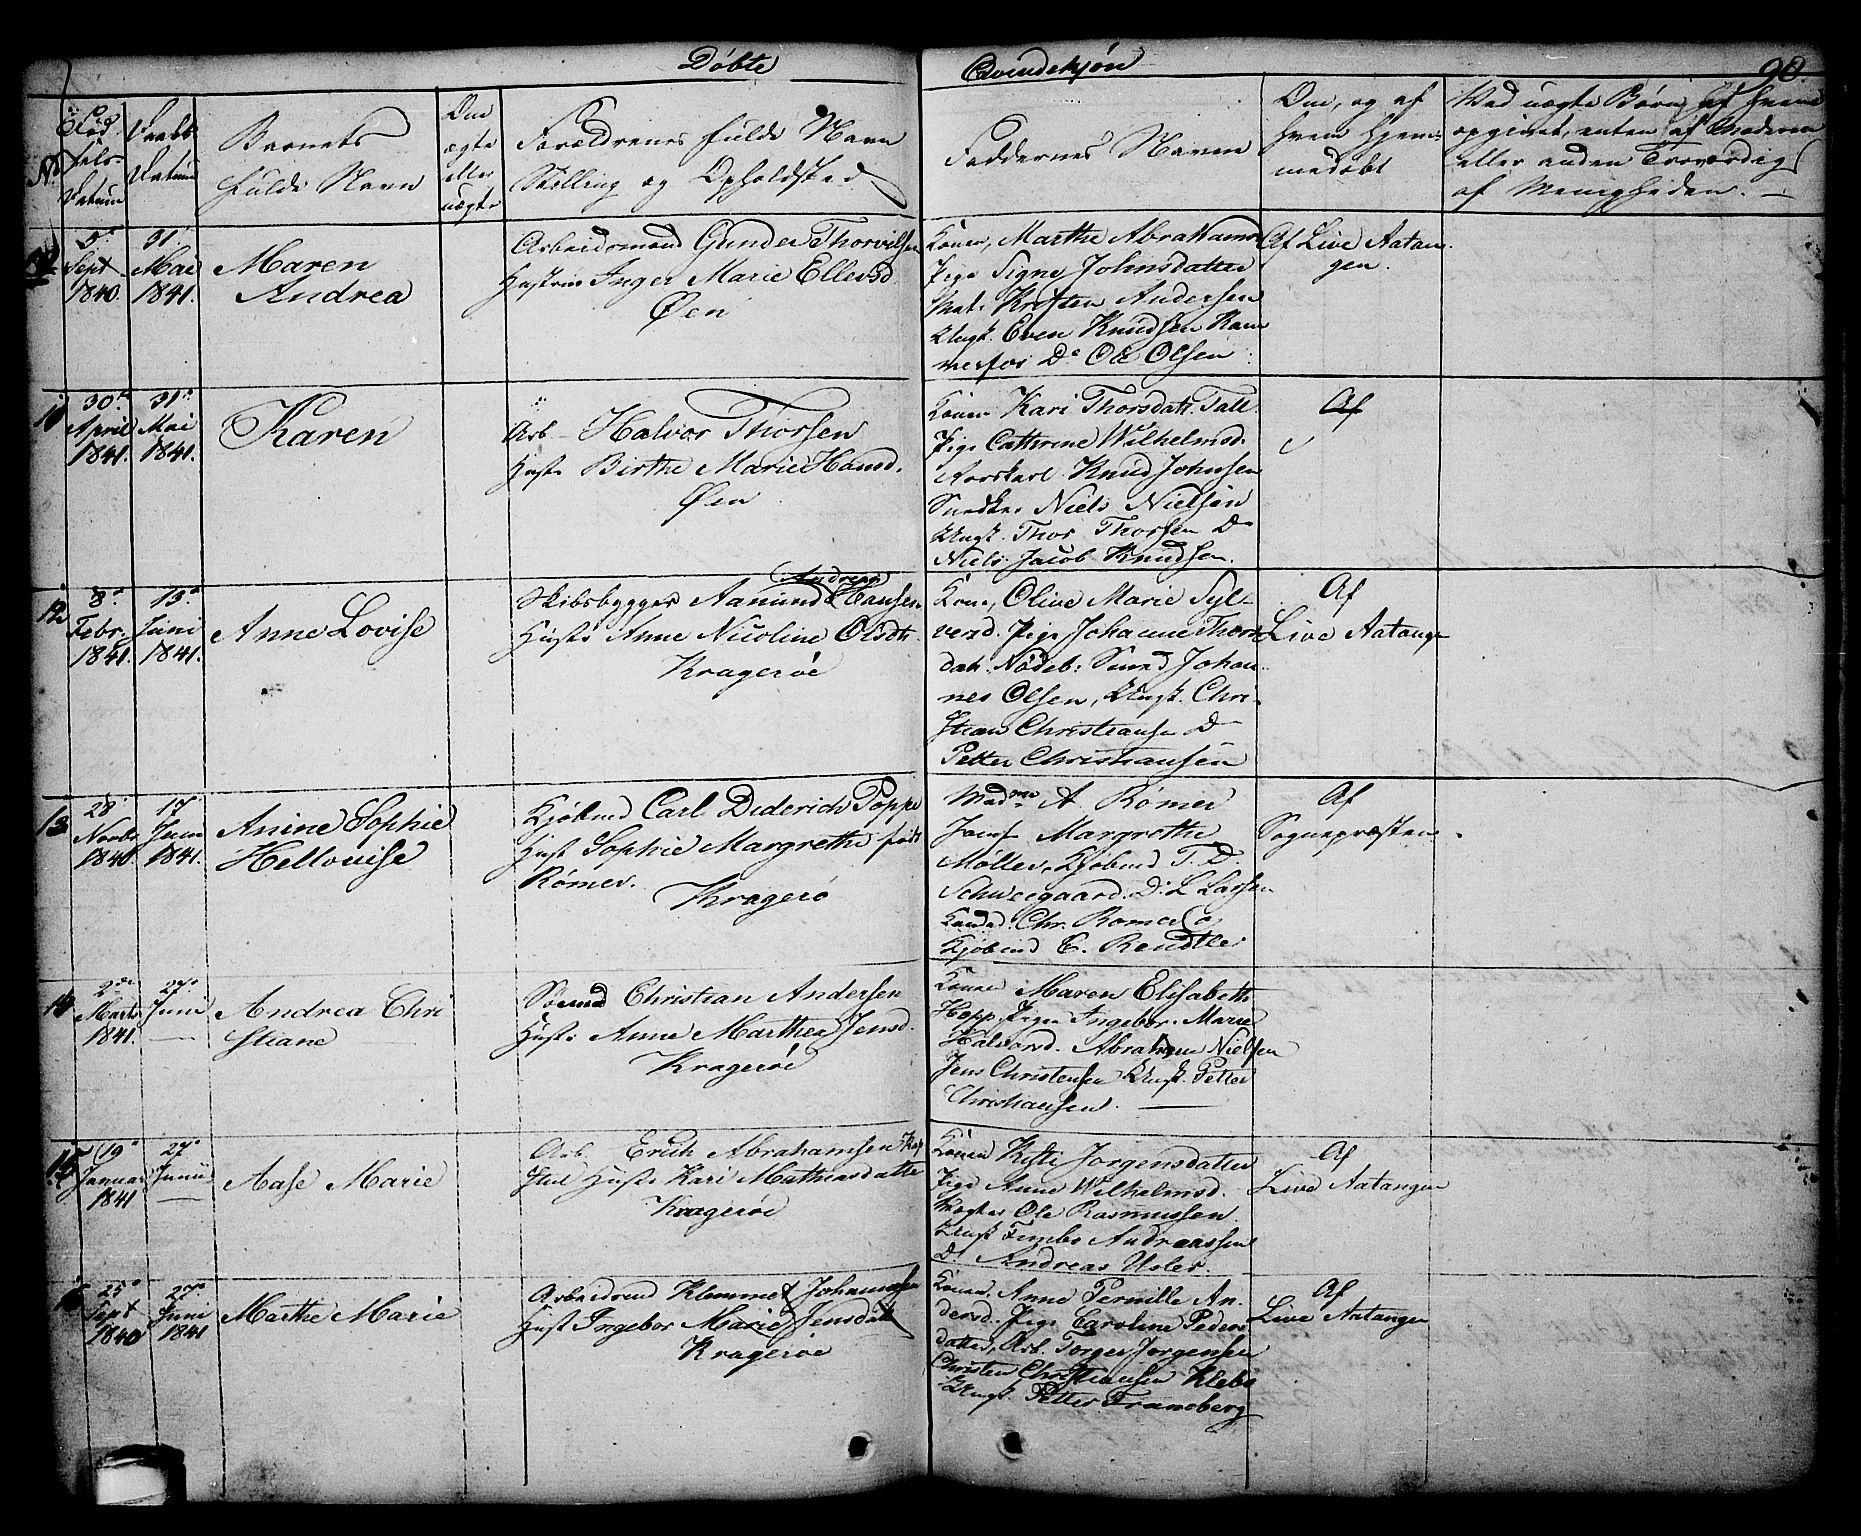 Døbte
Qvindekjøn
90.
No
Fødsels Datum
Daabs Datum
Barnets
fulde Navn
Om
ægte
eller
uægte
Forældrenes fulde Navn
Stilling og Opholdsted
Faddernes Navne
Om, og af
hvem hjem-
medøbt
Ved uægte Børn, af hvem
opgivet, enten af Moderen
eller anden Troværdig
af Menigheden. —
5
Sept
1840.
31
Mai
1841.
Maren
Andrea
Arbeidsmand Gunder Thorvilsen
Hustrue Inger Marie Ellevsd
Øen
Konen, Marthe Abrahams
Pige Signe Johnsdatter
Mat. Kristen Andersen
Ungk. Even Knudsen Kam
merfos Do Ole Olsen
Af Live Aatan
gen.
11
30
April
1841.
31
Mai
1841.
Karen
Arb — Halvor Thorsen
Hust: Birthe Marie Hansd.
Øen
Konen Kari Thorsdatr. Tall
Pige Cathrine Wilhelmsd.
Knud Johnsen
Snedker Niels Nielsen
Ungk. Thor Thorsen Do
Niels Jacob Knudsen.
Af
12
8
Febr.
1841.
13
Juni
1841.
Anne Lovise
Andreas
Skibsbygger Aanund Hansen
Hust: Anne Nicoline Olsdtr.
Kragerøe
Kone, Olive Marie Syl-
versd. Pige Johanne Thors
datr. Nødeb: Smed Johan-
nes Olsen, Ungk. Chri-
stian Christiansen Do
Petter Christiansen
Af
Live Aatange
13
28
Novbr
1840.
17
Juni
1841.
Anine Sophie
Hellovise
Kjøbmd Carl Diderich Poppe
Hust Sophie Margrethe født
Rømer.
Kragerø
Madme A. Rømer
Jomf Margrethe
Møller, Kjøbmd T. D.
Schweegaard. Do L Lassen
Chr. Romer &
Kjøbmd C. Rendtler
Af
Sognepræsten.
14
2den
Marts
1841.
27
Juni
—
Andrea Chri
stiane
Sømnd Christian Andersen
Hust: Anne Marthea Jensd.
Kragerøe
Konen Maren Elisabeth
Hopp. Pige Ingebor. Marie
Halvorsd. Abraham Nielsen
Jens Christensen Ungk. Petter
Christiansen. —
15
19
Januar
1841
27
Junii
—
Aase Marie
Arb. Erich Abrahamsen
Hust: Kari Mathiasdatter
Kragerøe
Konen Kisti Jorgensdatter
Pige Anne Wilhelmsd.
Ole Rasmussen
Ungk Timbo Andreassen
Do Andreas Usler.
Af
Live Aatangen
16
25
Sept
1840
27
Juni
1841
Marthe Marie
Arbeidsmd Klemmet Johannesen
Hust Ingebor Marie Jensdatt
Kragerøe
Konen, Anne Pernille An-
dersd. Pige Caroline Peders
datter, Arb. Torger Jorgensen
Christen Christiansen Klebo
Ungk. Petter Traneberg
Af
Live Aatangen